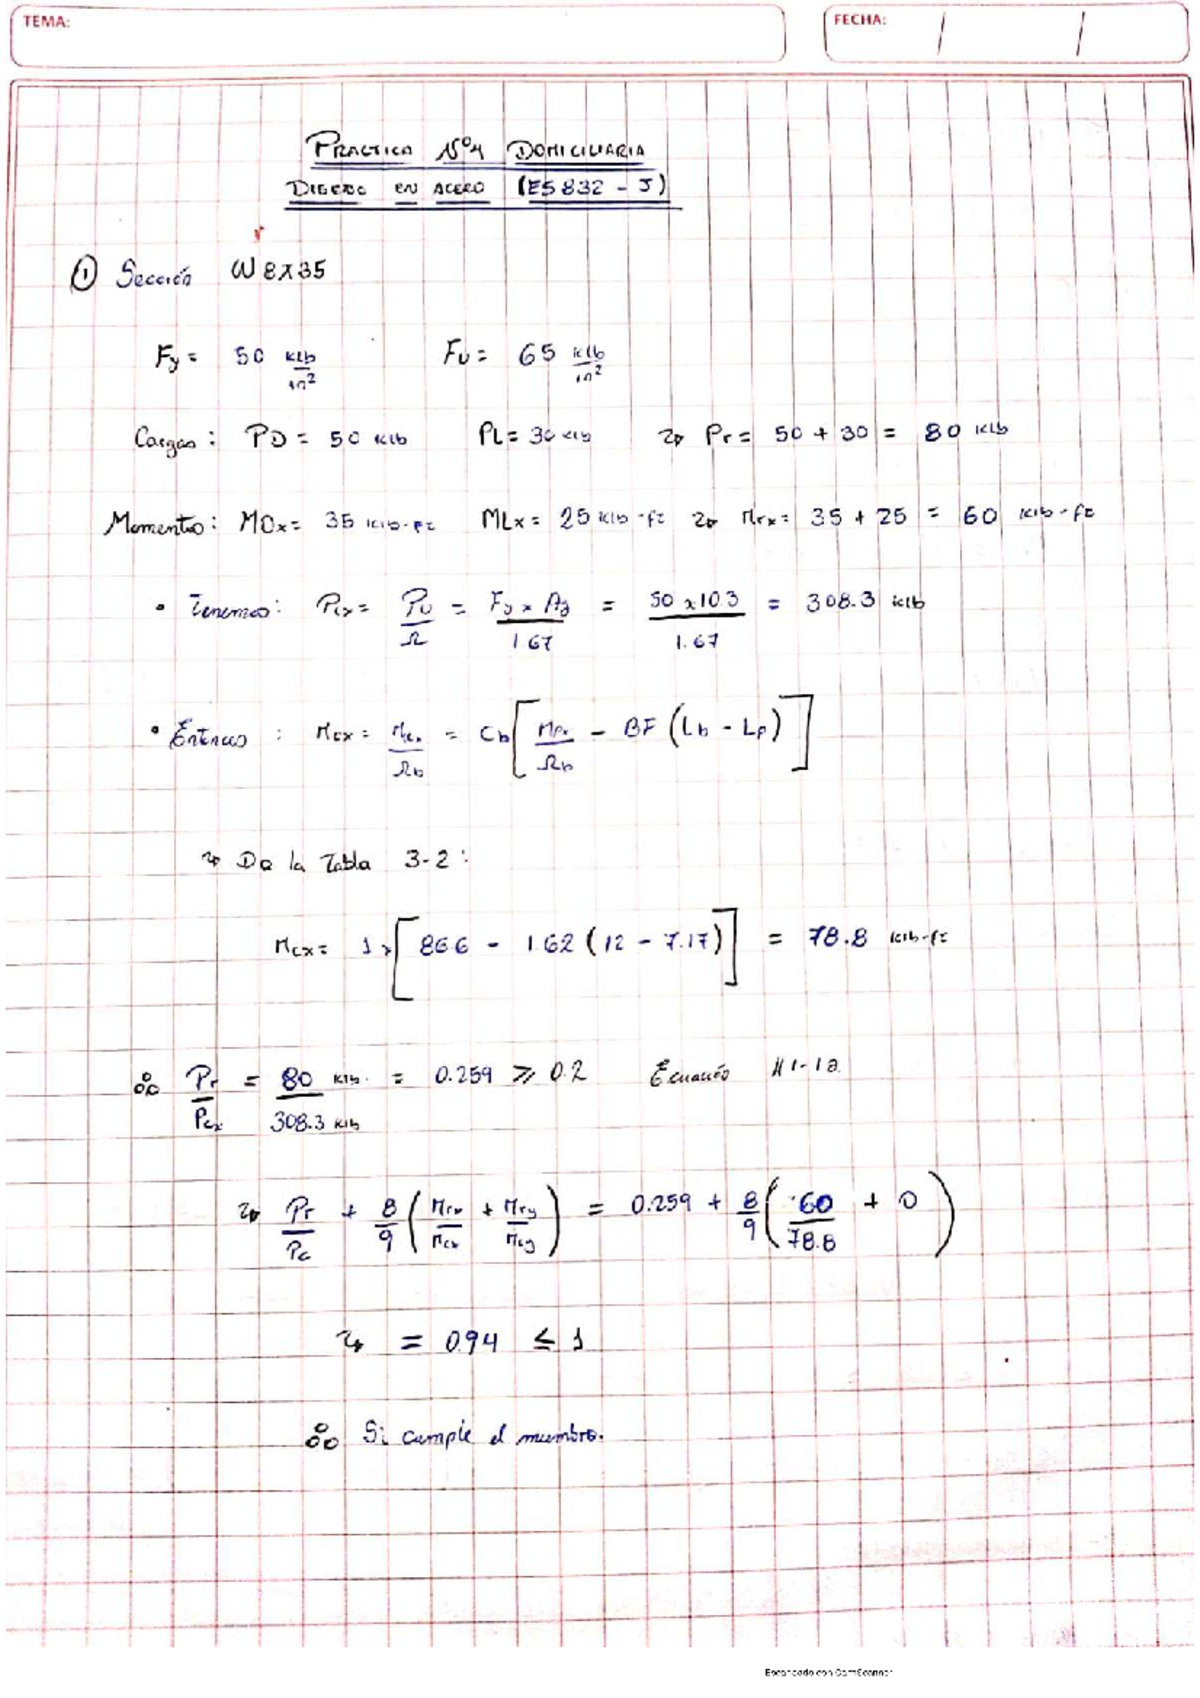 TEMA:
FECHA: / /
PRACTICA Nº4 DOMICILIARIA
DISEÑO EN ACERO (ES832 - J)
① Sección W8X35
Fy = 50 klb/in² Fu = 65 klb/in²
Cargas: PD = 50 klb PL = 30 klb → Pr = 50 + 30 = 80 klb
Momentos: MDx = 35 klb-ft MLx = 25 klb-ft → Mrx = 35 + 25 = 60 klb-ft
• Tenemos: Pcx = Pu/Ω = Fy x Ag/1.67 = 50 x 10.3/1.67 = 308.3 klb
• Entonces : Mcx = Mcx/Ωb = Cb [Mpx/Ωb - BF (Lb - Lp)]
→ De la Tabla 3-2:
Mcx = 1 x [86.6 - 1.62 (12 - 7.17)] = 78.8 klb-ft
∴ Pr/Pcx = 80 klb/308.3 klb = 0.259 ≥ 0.2 Ecuación H1-1a
→ Pr/Pc + 8/9 (Mrx/Mcx + Mry/Mcy) = 0.259 + 8/9 (60/78.8 + 0)
→ = 0.94 ≤ 1
∴ Si cumple el miembro.
Escaneado con CamScanner